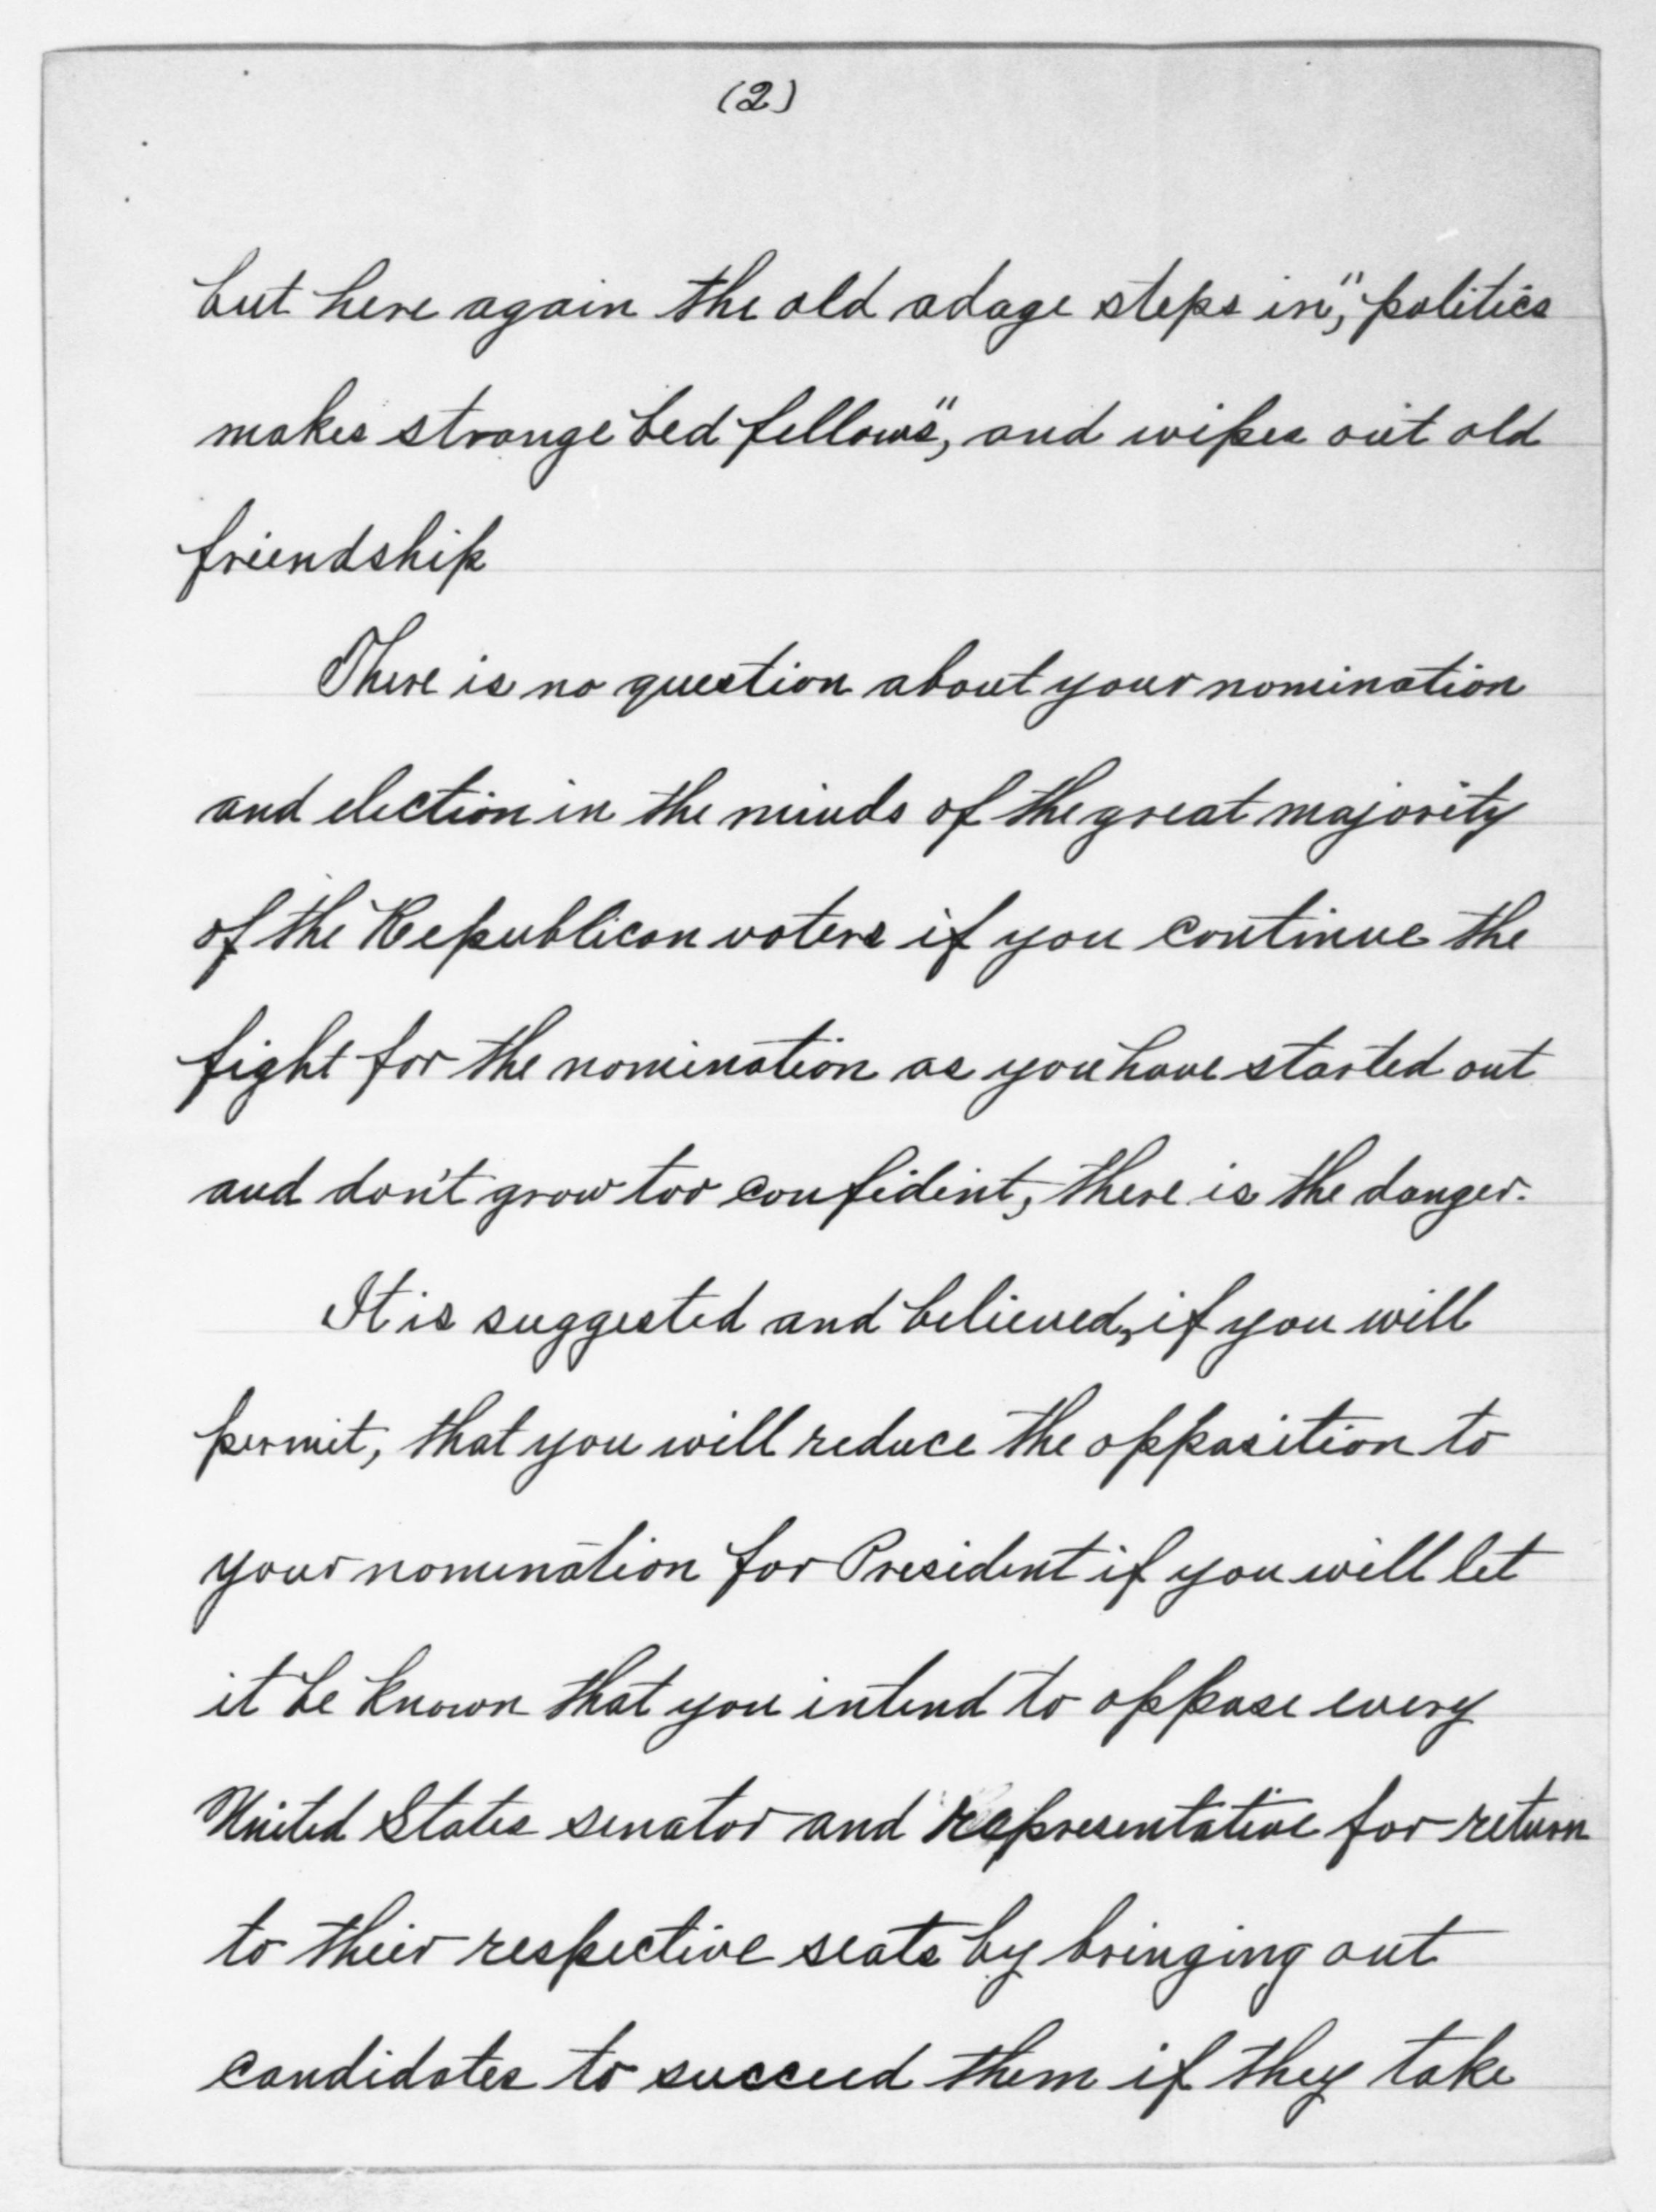 (2)
but here again the old adage steps in, "politics
makes strange bed fellows", and wipes out old
friendship
There is no question about your nomination
and election in the minds of the great majority
of the Republican voters if you continue the
fight for the nomination as you have started out
and don't grow too confident, there is the danger.
It is suggested and believed, if you will
permit, that you will reduce the opposition to
your nomination for President if you will let
it be known that you intend to oppose every
United States senator and representative for return
to their respective seats by bringing out
candidates to succeed them if they take